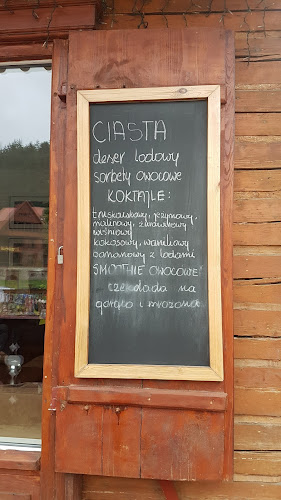 CIASTA
deser lodowy
sorbety owocowe
KOKTAJLE:
truskawkowy, jeżynowy,
malinowy, żurawinowy
wiśniowy
kokosowy, waniliowy
bananowy z lodami
SMOOTHIE OWOCOWE
czekolada na
gorąco i mrożona